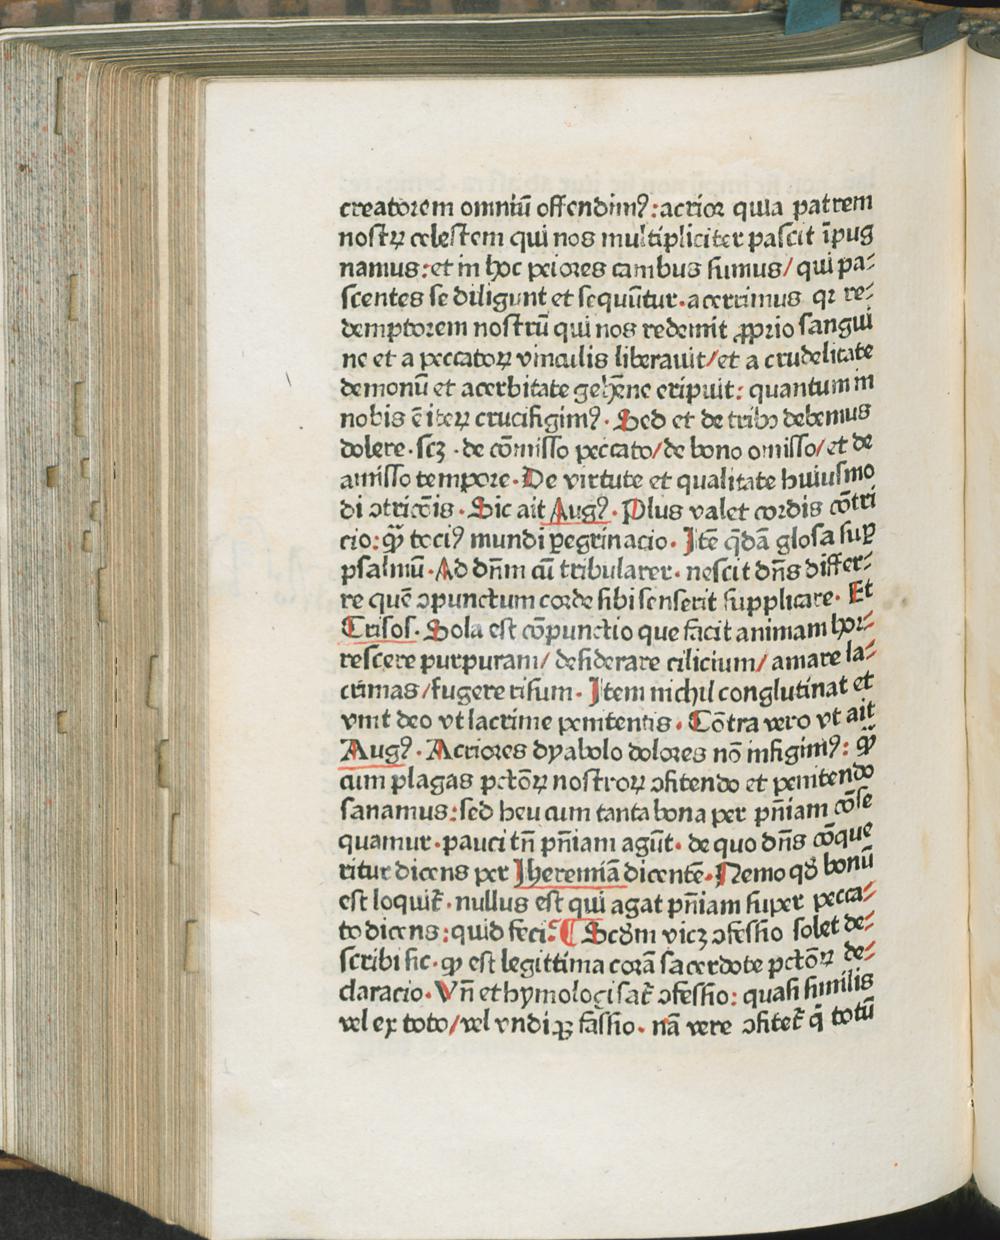 creatorem omniū offendimꝰ: acrior quia patrem
nostrꝝ celestem qui nos multipliciter pascit īpug
namus: et in hoc peiores canibus sumus/ qui pa⸗
scentes se diligunt et sequūtur. acerrimus qꝛ re⸗
demptorem nostrū qui nos redemit ꝓprio sangui
ne et a peccatoꝝ vinculis liberauit/et a crudelitate
demonū et acerbitate gehēne eripuit: quantum in
nobis ē iteꝝ crucifigimꝰ. Sed et de tribꝫ debemus
dolere. scꝫ . de cōmisso peccato/de bono omisso/et de
amisso tempore. De virtute et qualitate huiusmo
di ↄtricōis. Sic ait Augꝰ. Plus valet cordis cōtri
cio: qͣꝫ tociꝰ mundi ꝑegrinacio. Itē q̄dā glosa suꝑ
psalmū. Ad dn̄m cū tribularer. nescit dn̄s differ⸗
re quē ↄpunctum corde sibi senserit supplicare. Et
Crisos. Sola est cōpunctio que facit animam hor⸗
rescere purpuram/ desiderare cilicium/ amare la⸗
crimas/fugere risum. Item nichil conglutinat et
vnit deo vt lacrime penitentis. Cōtra vero vt ait
Augꝰ. Acriores dyabolo dolores nō infigimꝰ: qͣꝫ
cum plagas pctōꝝ nostroꝝ ↄfitendo et penitendo
sanamus: sed heu cum tanta bona per pn̄iam cōse
quamur. pauci tn̄ pn̄iam agūt. de quo dn̄s cōque
ritur dicens per Jheremiā dicentē. Nemo qđ bonū
est loquit᷑. nullus est qui agat pn̄iam super pecca⸗
to dicens: quid feci. ¶ Scđm vicꝫ ↄfessio solet de⸗
scribi sic. qꝫ est legittima corā sacerdote pctōꝝ de⸗
claracio. Vn̄ ethymologisat᷑ ↄfessio: quasi similis
vel ex toto/vel vndiqꝫ fassio. nā vere ↄfitet᷑ q̄ totū